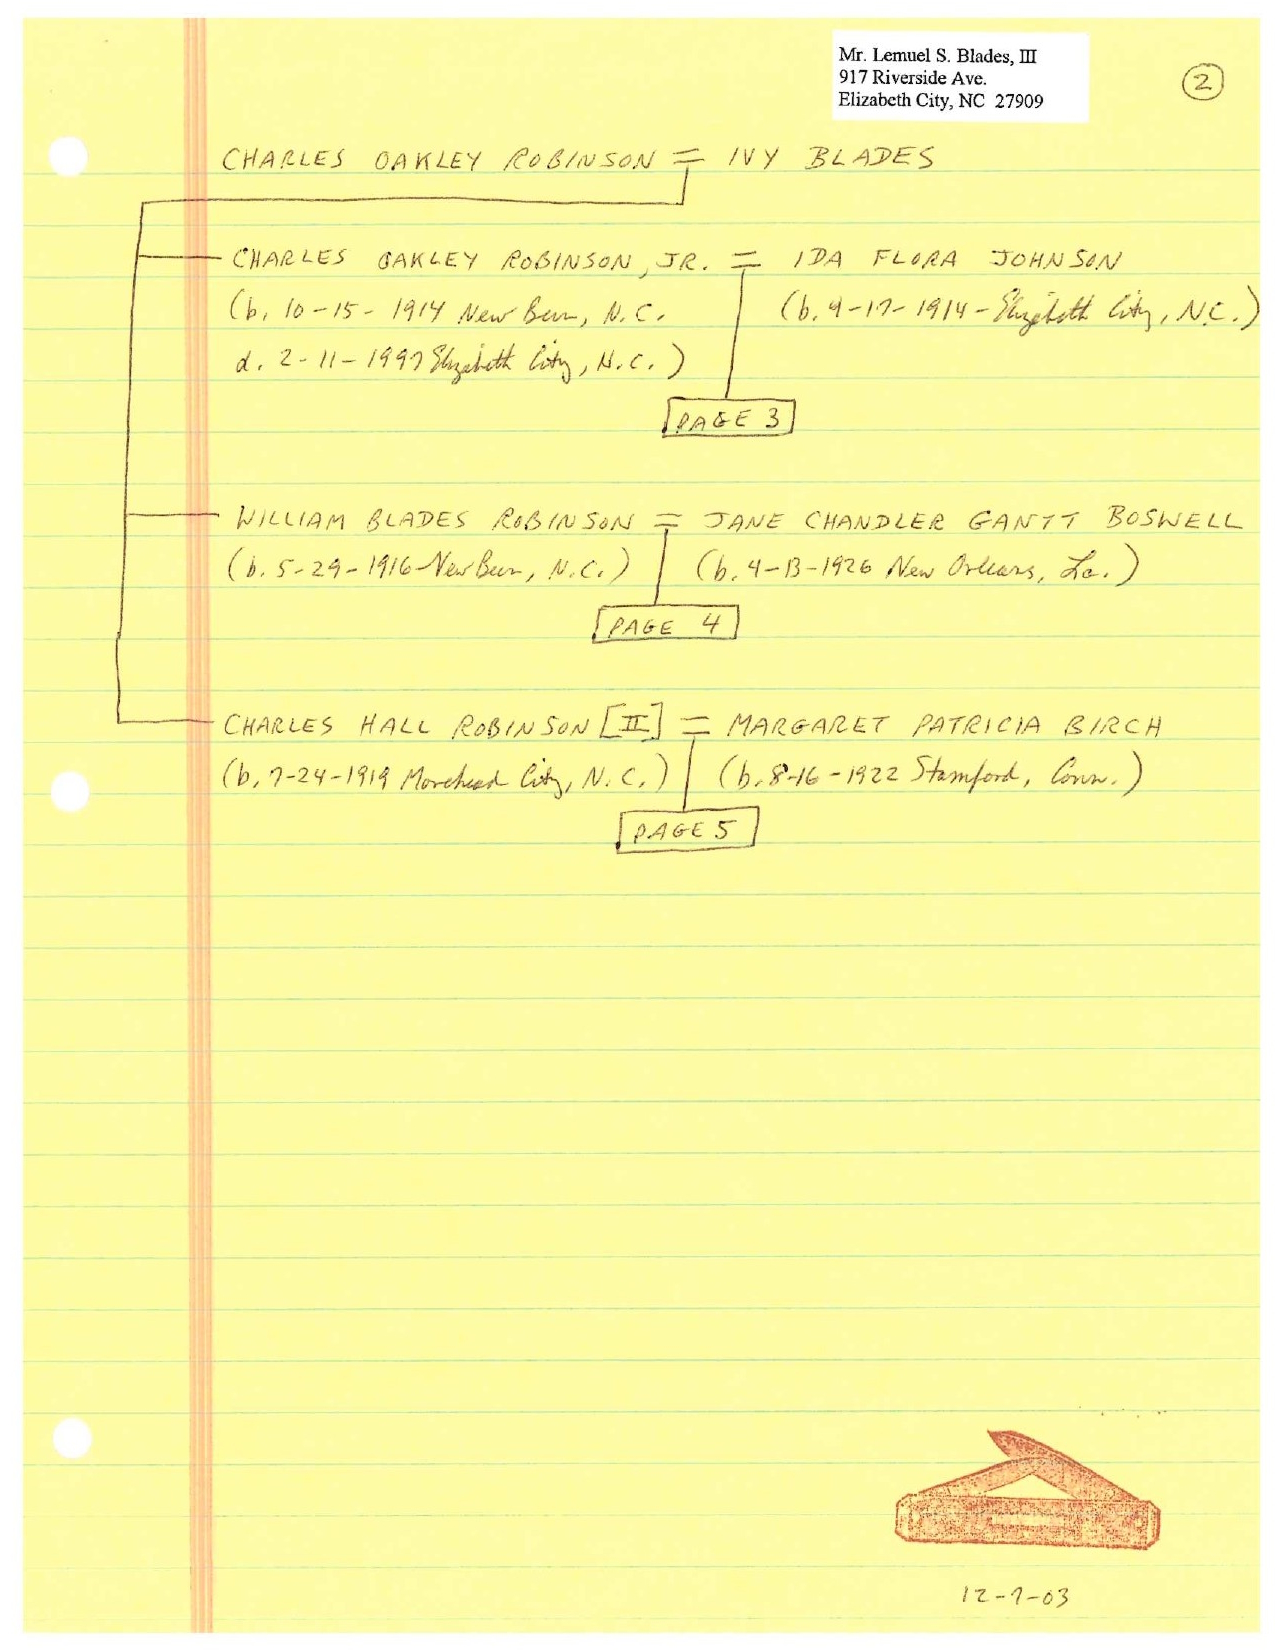 Mr. Lemuel S. Blades, III
917 Riverside Ave.
Elizabeth City, NC 27909
2
CHARLES OAKLEY ROBINSON = IVY BLADES
CHARLES OAKLEY ROBINSON, JR. = IDA FLORA JOHNSON
(b. 10-15-1914 New Bern, N.C. (b. 9-17-1914-Elizabeth City, N.C.)
d. 2-11-1997 Elizabeth City, N.C.)
PAGE 3
WILLIAM BLADES ROBINSON = JANE CHANDLER GANTT BOSWELL
(b. 5-29-1916-New Bern, N.C.) (b. 4-13-1926 New Orleans, La.)
PAGE 4
CHARLES HALL ROBINSON [II] = MARGARET PATRICIA BIRCH
(b. 7-24-1919 Morehead City, N.C.) (b. 8-16-1922 Stamford, Conn.)
PAGE 5
12-7-03